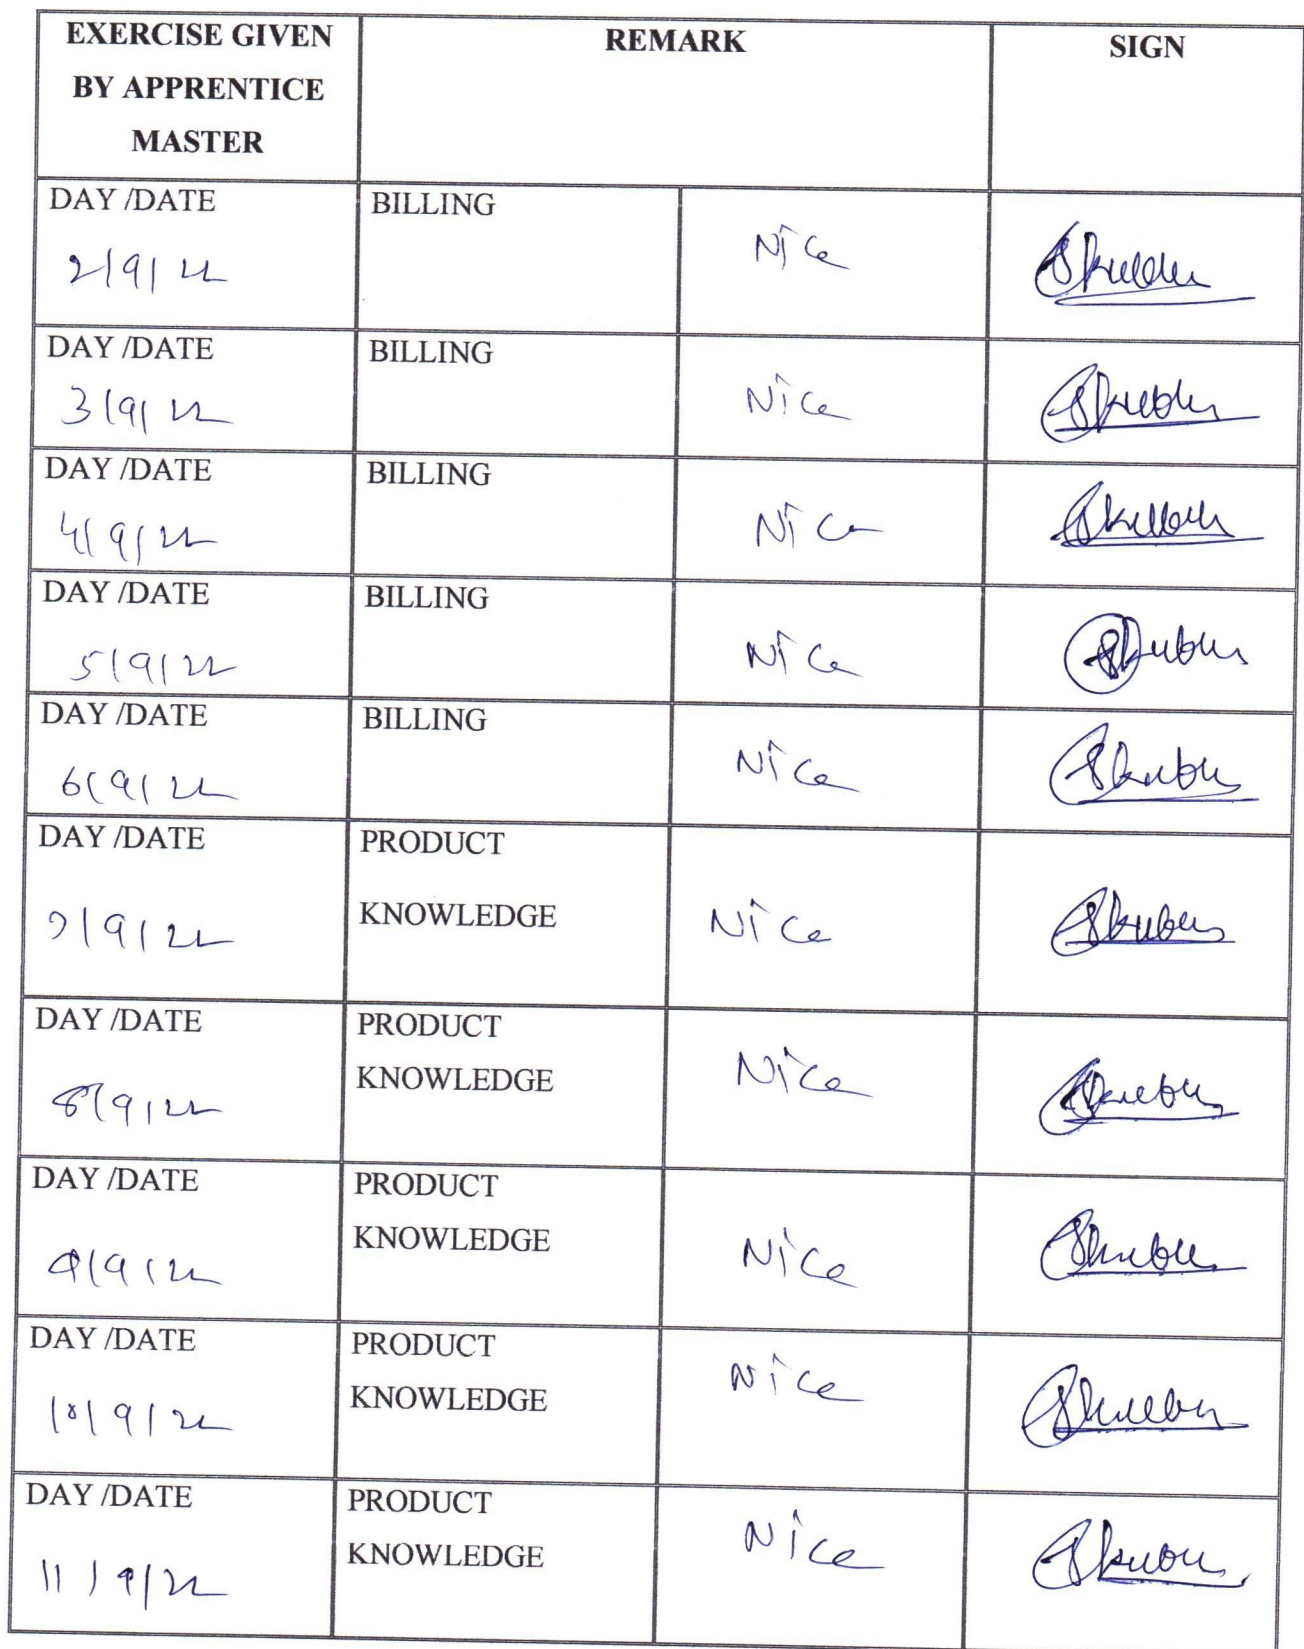 EXERCISE GIVEN
BY APPRENTICE
MASTER
REMARK
SIGN
DAY /DATE
2/9/22
BILLING
Nice
DAY /DATE
3/9/22
BILLING
Nice
DAY /DATE
4/9/22
BILLING
Nice
DAY /DATE
5/9/22
BILLING
Nice
DAY /DATE
6/9/22
BILLING
Nice
DAY /DATE
7/9/22
PRODUCT
KNOWLEDGE
Nice
DAY /DATE
8/9/22
PRODUCT
KNOWLEDGE
Nice
DAY /DATE
9/9/22
PRODUCT
KNOWLEDGE
Nice
DAY /DATE
10/9/22
PRODUCT
KNOWLEDGE
Nice
DAY /DATE
11/9/22
PRODUCT
KNOWLEDGE
Nice